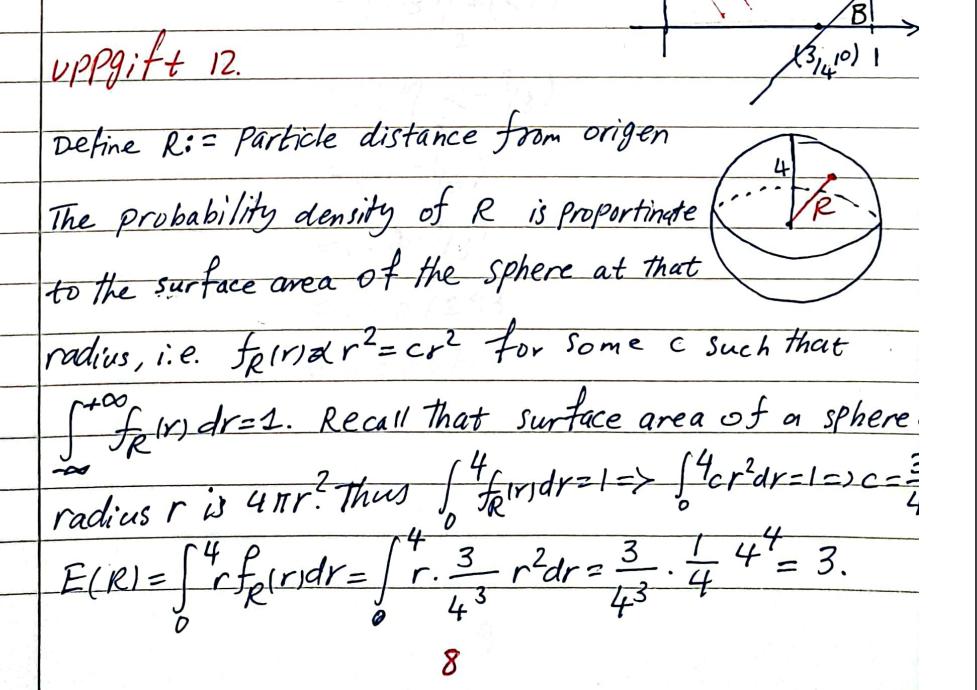 B
(3/4,0) 1
uppgift 12.
Define R:= Particle distance from origen
4
R
The probability density of R is proportinate
to the surface area of the sphere at that
radius, i.e. f_R(r) α r² = cr² for some c such that
∫_{-∞}^{+∞} f_R(r) dr=1. Recall that surface area of a sphere
radius r is 4πr². Thus ∫_0^4 f_R(r)dr=1 => ∫_0^4 cr²dr=1 => c=
E(R) = ∫_0^4 r f_R(r)dr = ∫_0^4 r. 3/4³ r²dr = 3/4³ . 1/4 4⁴ = 3.
8